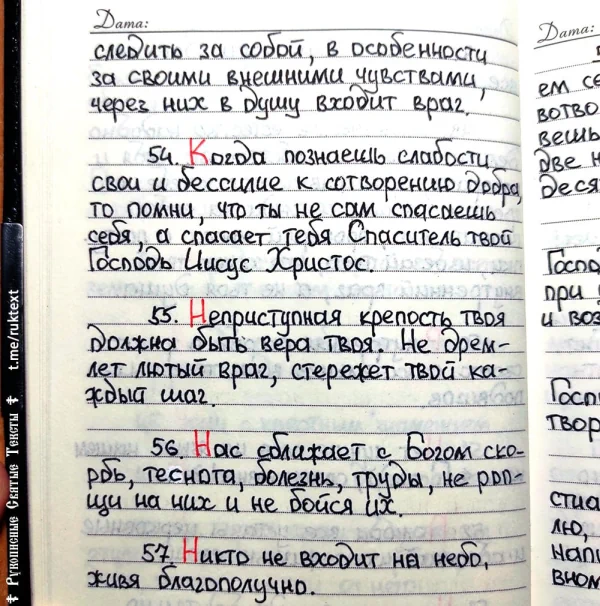 Дата:
следить за собой, в особенности
за своими внешними чувствами,
через них в душу входит враг.
54. Когда познаешь слабости
свои и бессилие к сотворению добра,
то помни, что ты не сам спасаешь
себя, а спасает тебя Спаситель твой
Господь Иисус Христос.
55. Неприступная крепость твоя
должна быть вера твоя. Не дрем-
лет лютый враг, стережет твой ка-
ждый шаг.
56. Нас сближает с Богом ско-
рбь, теснота, болезнь, труды, не роп-
щи на них и не бойся их.
57. Никто не входит на небо,
живя благополучно.
Дата:
ем се
вотво
вешь
две н
Деся
Госпо
при
и воз
Госп
твор
стиа
лю,
напи
вном
Рукописные Святые Тексты t.me/ruktext